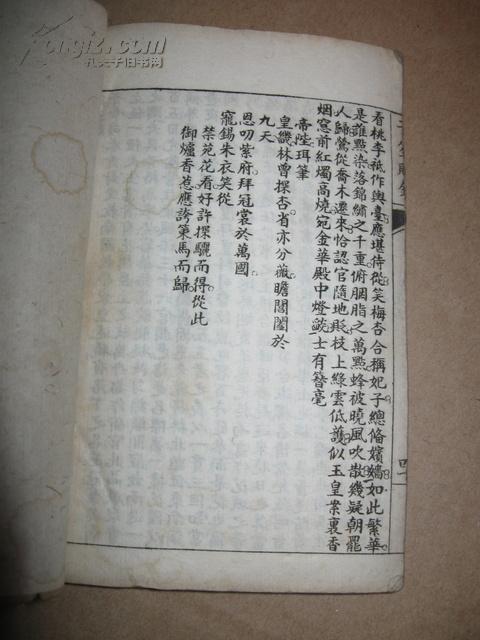 看桃李祗作輿臺應堪侍從笑梅杏合稱妃子總備嬪嬙如此繁華
是誰點染落錦繡之千重俯胭脂之萬點蜂被曉風吹散幾疑朝罷
人歸鶯從喬木遷來恰認官隨地貶枝上綠雲低護似玉皇案裏香
烟窓前紅燭高燒宛金華殿中燈燄士有簪毫
帝陛珥筆
皇畿林曾探杏省亦分薇瞻閶闔於
九天
恩叨紫府拜冠裳於萬國
寵錫朱衣笑從
禁苑花看好許探驪而得從此
御爐香惹應誇策馬而歸
四十
kongfz.com
孔夫子旧书网